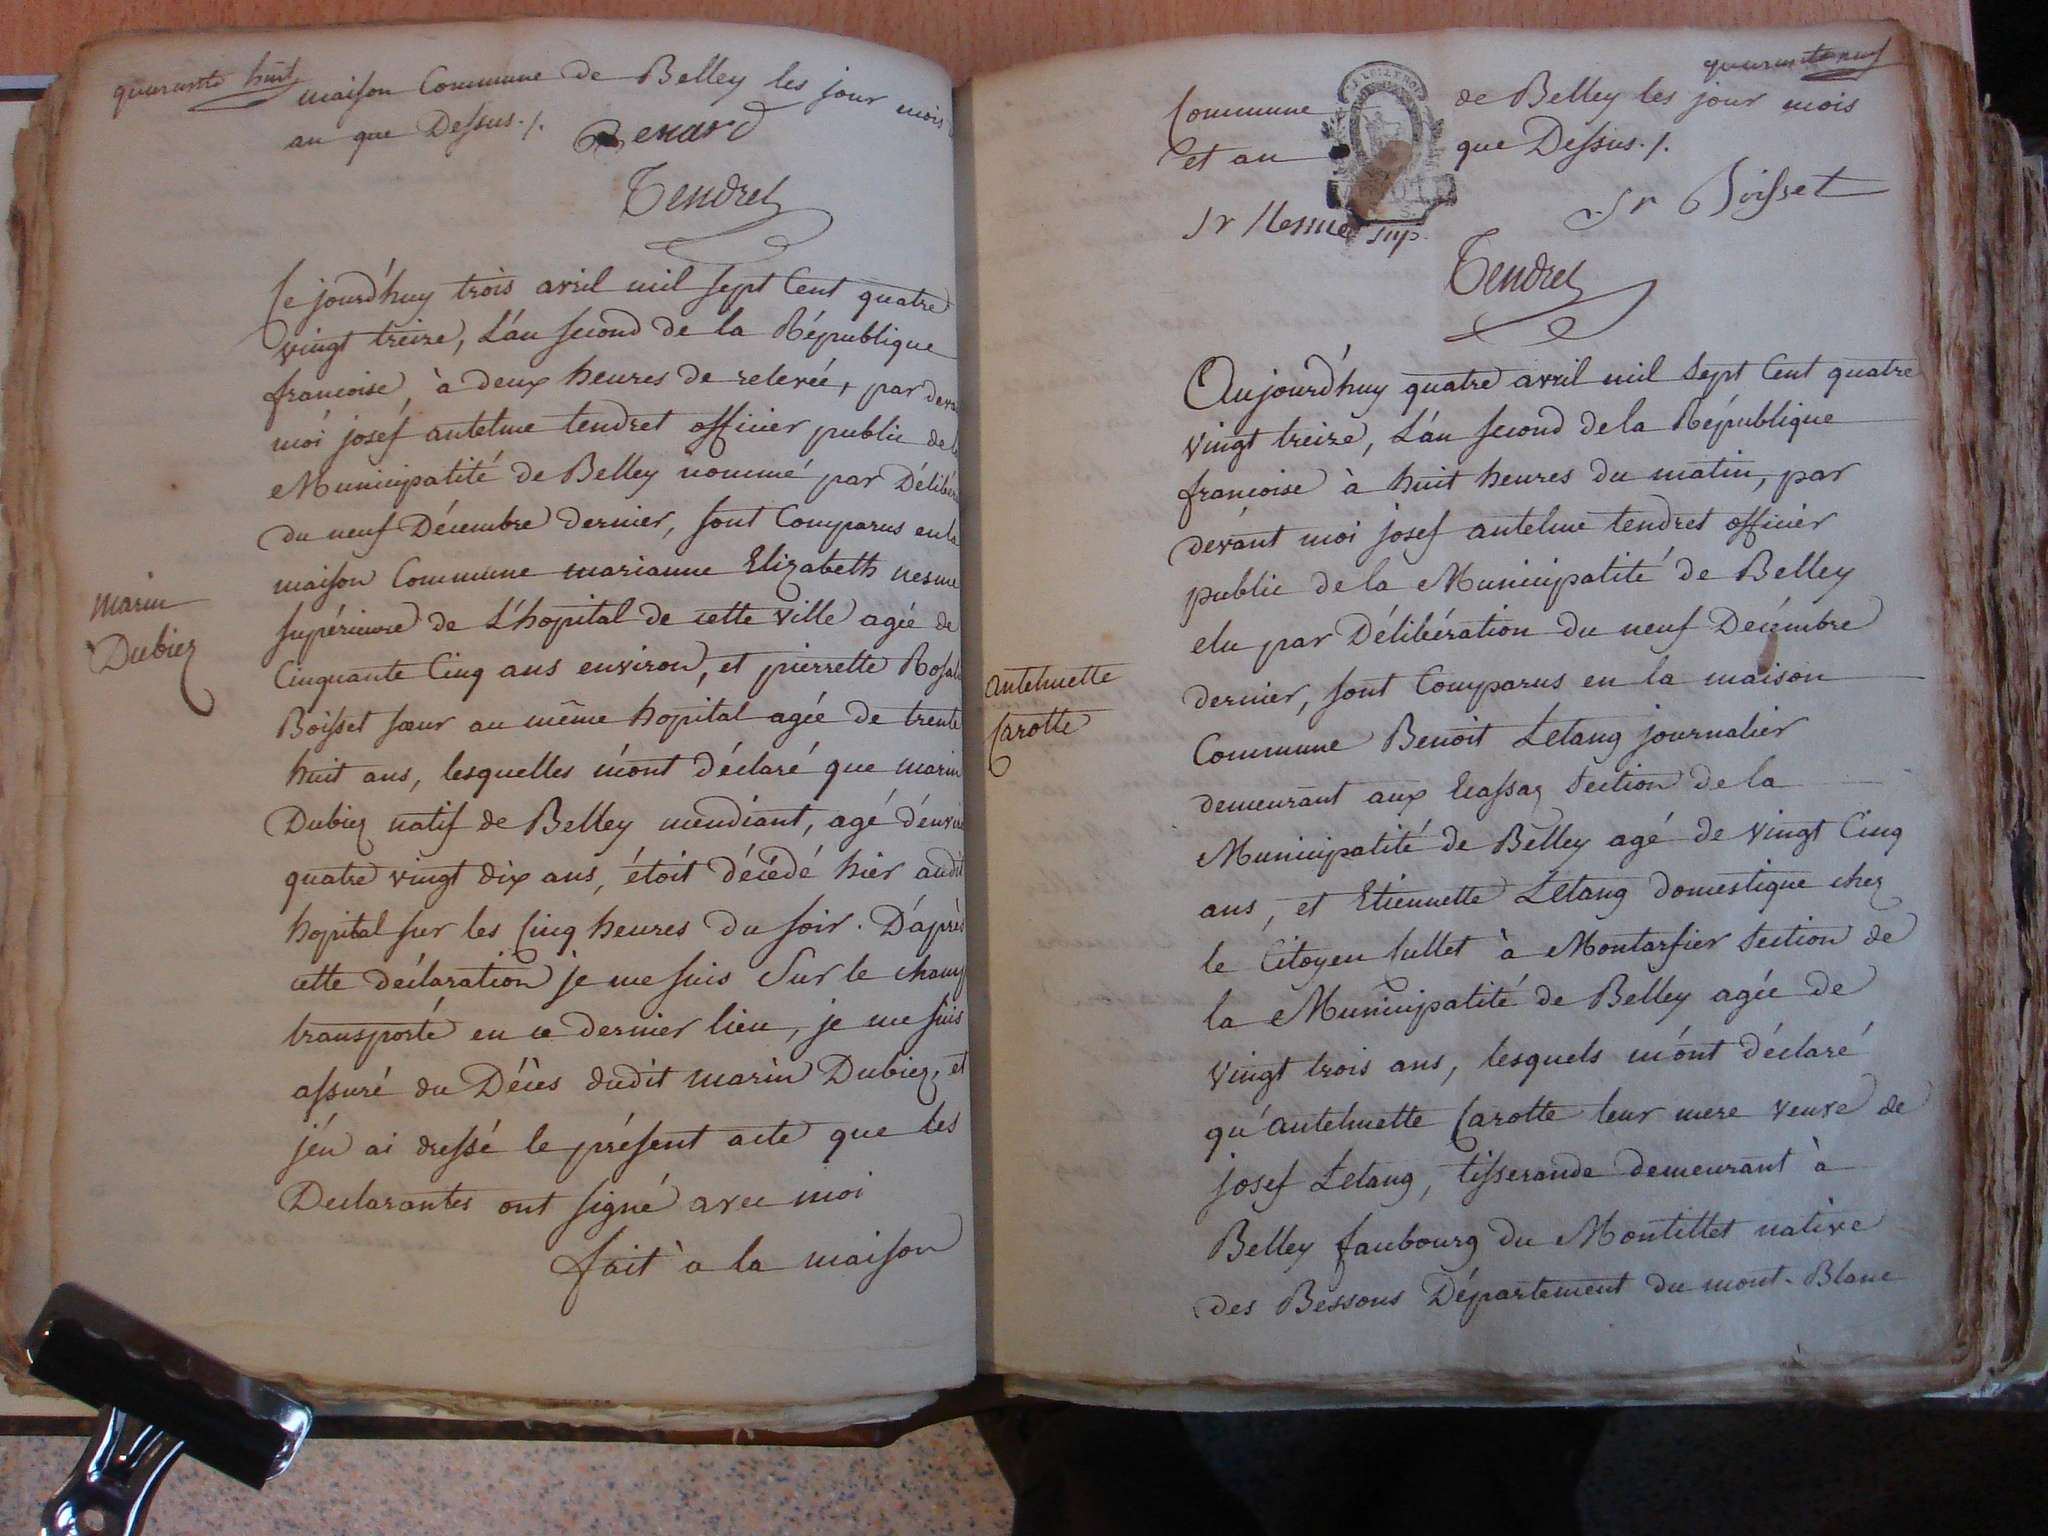 quarante huit
maison Commune de Belley les jour mois
an que Dessus ./.
Renard
Tendret
Ce jourd'huy trois avril mil sept Cent quatre
vingt treize, L'an second de la République
francoise, à deux heures de relevée, par deva
moi josef antelme tendret officier public de la
Municipalité de Belley nommé par Délibé
du neuf Décembre dernier, sont Comparus en la
maison Commune marianne Elizabeth nesme
supérieure de L'hopital de cette ville agée de
Cinquante Cinq ans environ, et pierrette Rosal
Boisset sœur au même hopital agée de trente
huit ans, lesquelles m'ont déclaré que marin
Dubiez natif de Belley mendiant, agé d'envir
quatre vingt dix ans, étoit décédé hier audit
hopital sur les Cinq heures du soir. D'après
cette déclaration je me suis sur le champ
transporté en ce dernier lieu, je me suis
assuré du Décès dudit marin Dubiez, et
j'en ai dressé le présent acte que les
Déclarantes ont signé avec moi
fait à la maison
marin
Dubiez
quarante neuf
Commune de Belley les jour mois
et an que Dessus ./.
Sr Nesme Sup. Sr Boisset
Tendret
Aujourd'huy quatre avril mil sept Cent quatre
vingt treize, L'an second de la République
francoise à huit heures du matin, par
devant moi josef antelme tendret officier
public de la Municipalité de Belley
elu par Délibération du neuf Décembre
dernier, sont Comparus en la maison
Commune Benoit Letang journalier
demeurant aux Ecassaz section de la
Municipalité de Belley agé de vingt Cinq
ans, et Etiennette Letang domestique chez
le Citoyen Sullet à Montarfier section de
la Municipalité de Belley agée de
vingt trois ans, lesquels m'ont déclaré
qu'antelmette Carotte leur mere veuve de
josef Letang, tisserande demeurant à
Belley faubourg du Montillet native
des Bessons Département du mont-Blanc
antelmette
Carotte